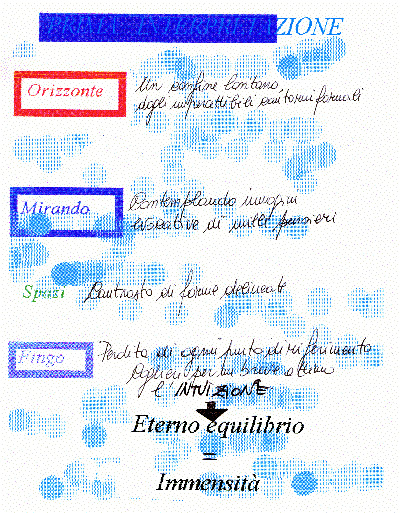 PRIMA INTERPRETAZIONE
Orizzonte
Un confine lontano
dagli imperattibili contorni formali
Mirando
Contemplando immagini
evocative di mille pensieri
Spazi
Contrasto di forme delineate
Fingo
Perdita di ogni punto di riferimento
per un breve attimo
l'INTUIZIONE
Eterno equilibrio
=
Immensità